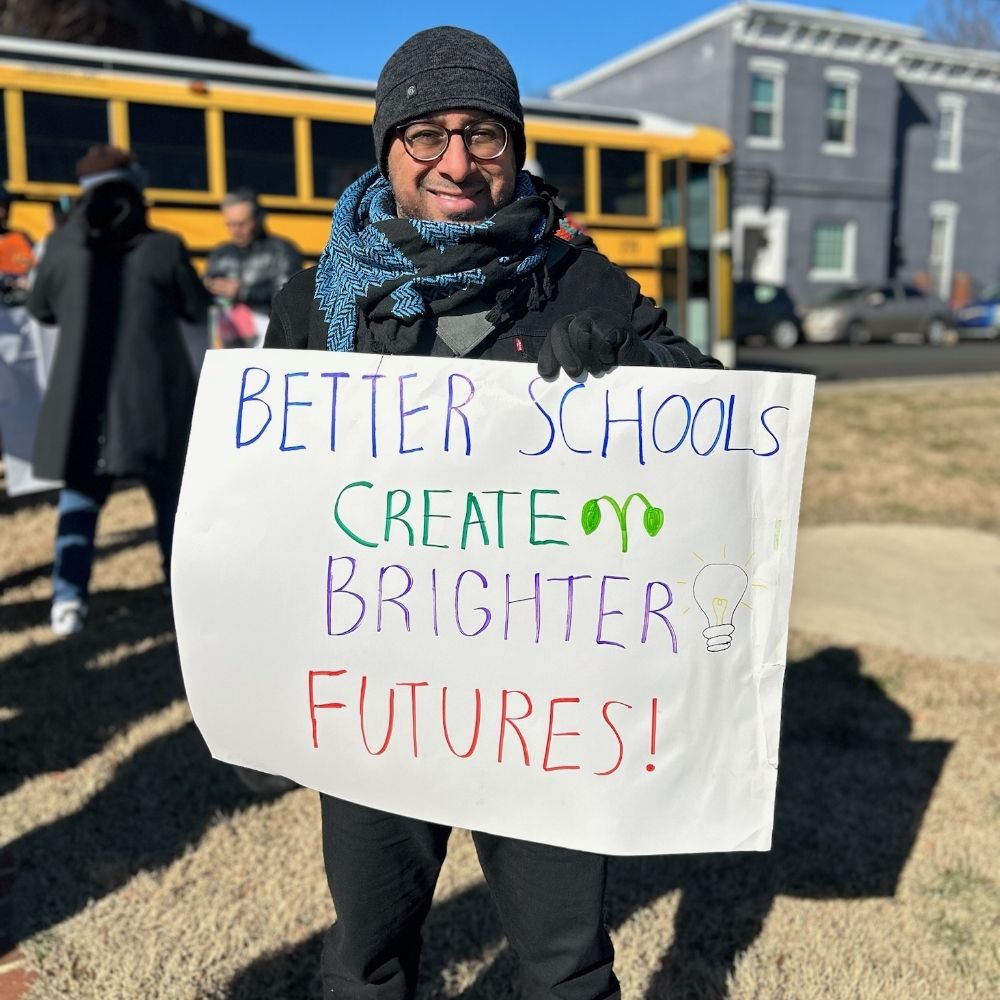 BETTER SCHOOLS
CREATE
BRIGHTER
FUTURES!